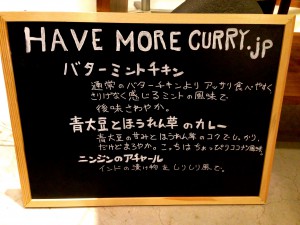 HAVE MORE CURRY.jp
バターミントチキン
通常のバターチキンより アッサリ食べやすく
さりげなく感じるミントの風味で
後味さわやか。
青大豆とほうれん草のカレー
青大豆の甘みとほうれん草のコクでしっかり、
だけどまろやか。こっちはちょっぴりココナツ風味
ニンジンのアチャール
インドの漬け物をしりしり風で。